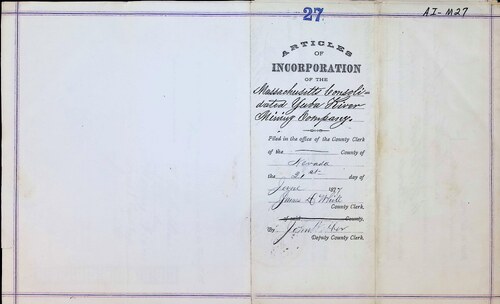 27
AI-M27
ARTICLES
OF
INCORPORATION
OF THE
Massachusetts Consoli-
dated Yuba River
Mining Company.
Filed in the office of the County Clerk
of the County of
Nevada
the 21st day of
June 1877
County Clerk.
County.
By
Deputy County Clerk.